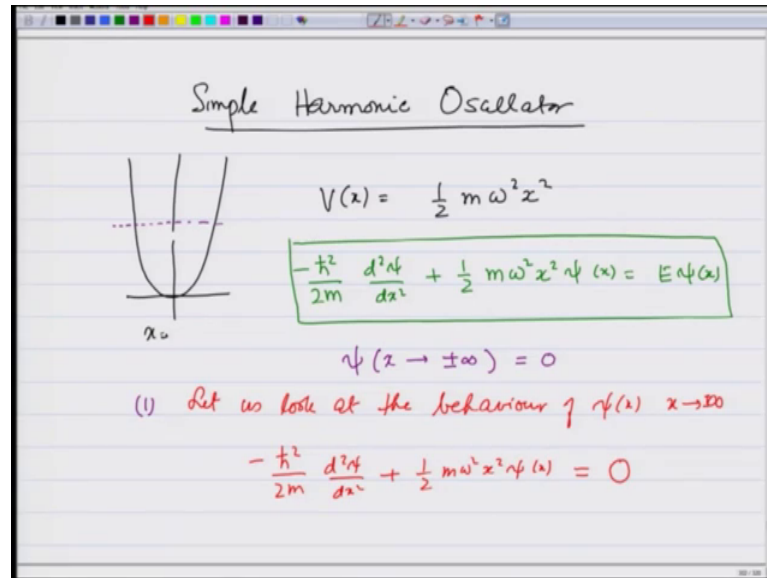 Simple Harmonic Oscillator
V(x) = 1/2 mω²x²
-ħ²/2m d²ψ/dx² + 1/2 mω²x²ψ(x) = Eψ(x)
ψ(x → ±∞) = 0
(1) Let us look at the behaviour of ψ(x) x→±∞
-ħ²/2m d²ψ/dx² + 1/2 mω²x²ψ(x) = 0